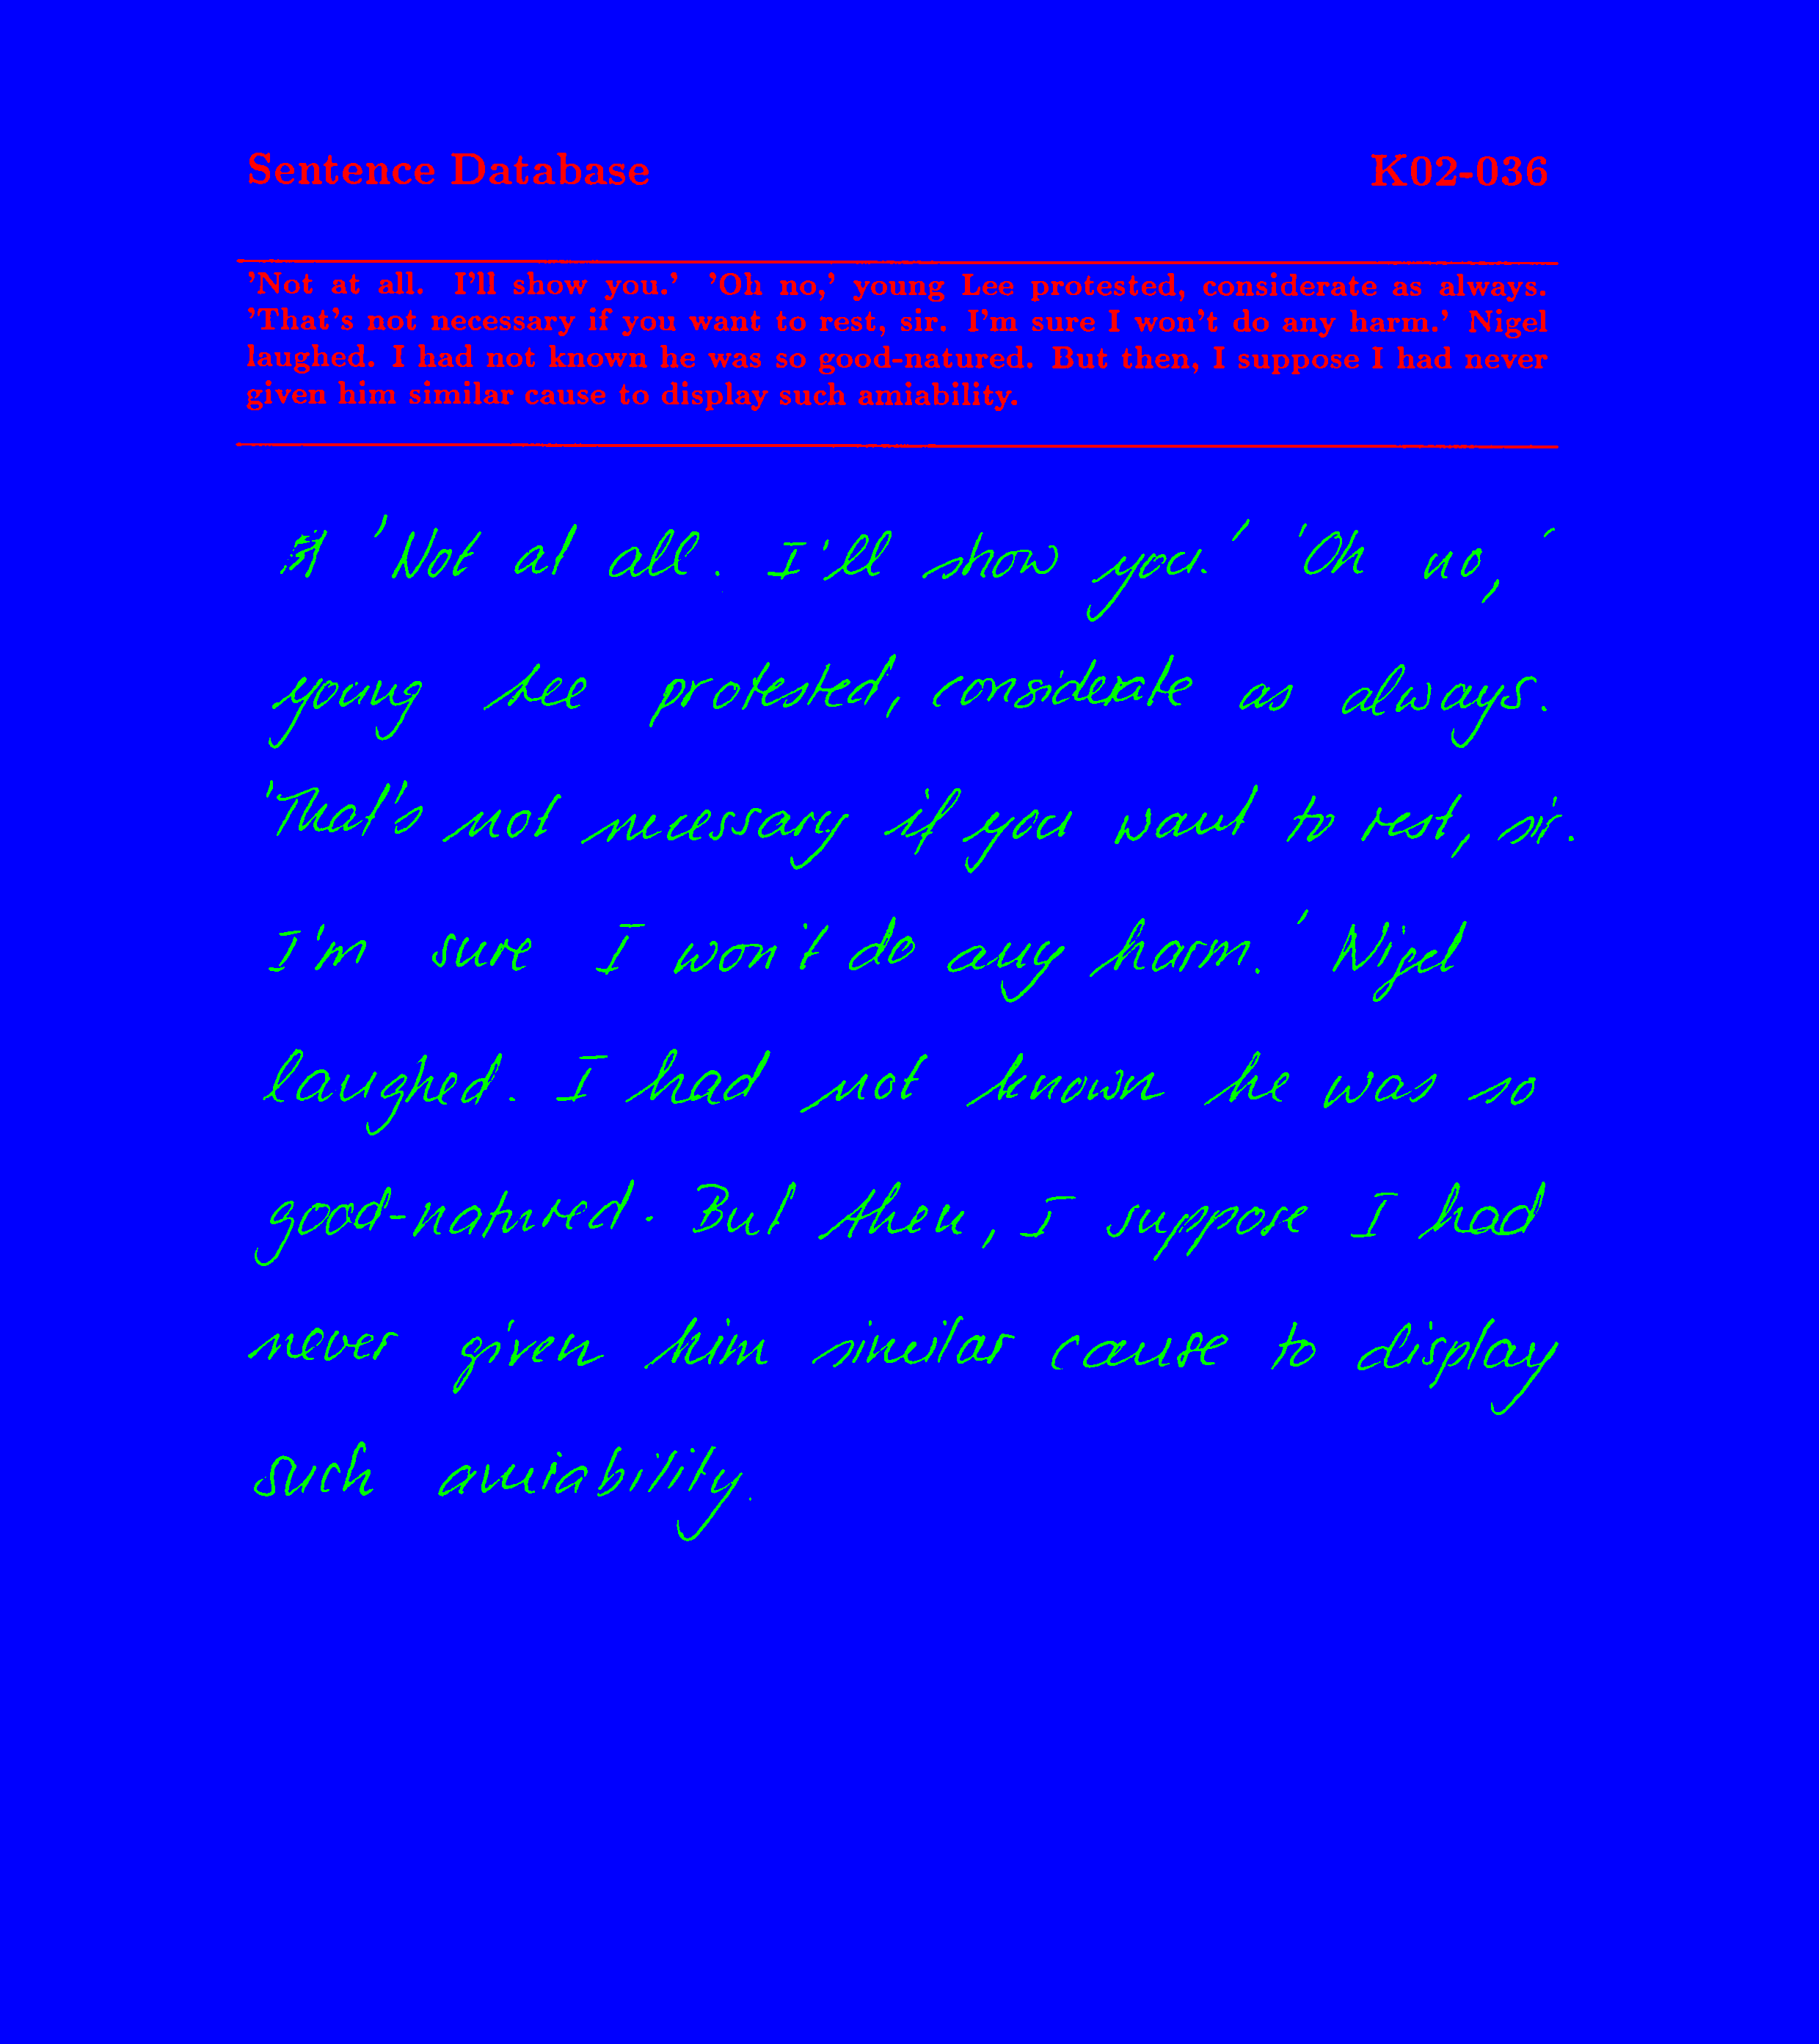 Sentence Database K02-036
'Not at all. I'll show you.' 'Oh no,' young Lee protested, considerate as always.
'That's not necessary if you want to rest, sir. I'm sure I won't do any harm.' Nigel
laughed. I had not known he was so good-natured. But then, I suppose I had never
given him similar cause to display such amiability.
'Not at all. I'll show you.' 'Oh no,'
young Lee protested, considerate as always.
'That's not necessary if you want to rest, sir.
I'm sure I won't do any harm.' Nigel
laughed. I had not known he was so
good-natured. But then, I suppose I had
never given him similar cause to display
such amiability.